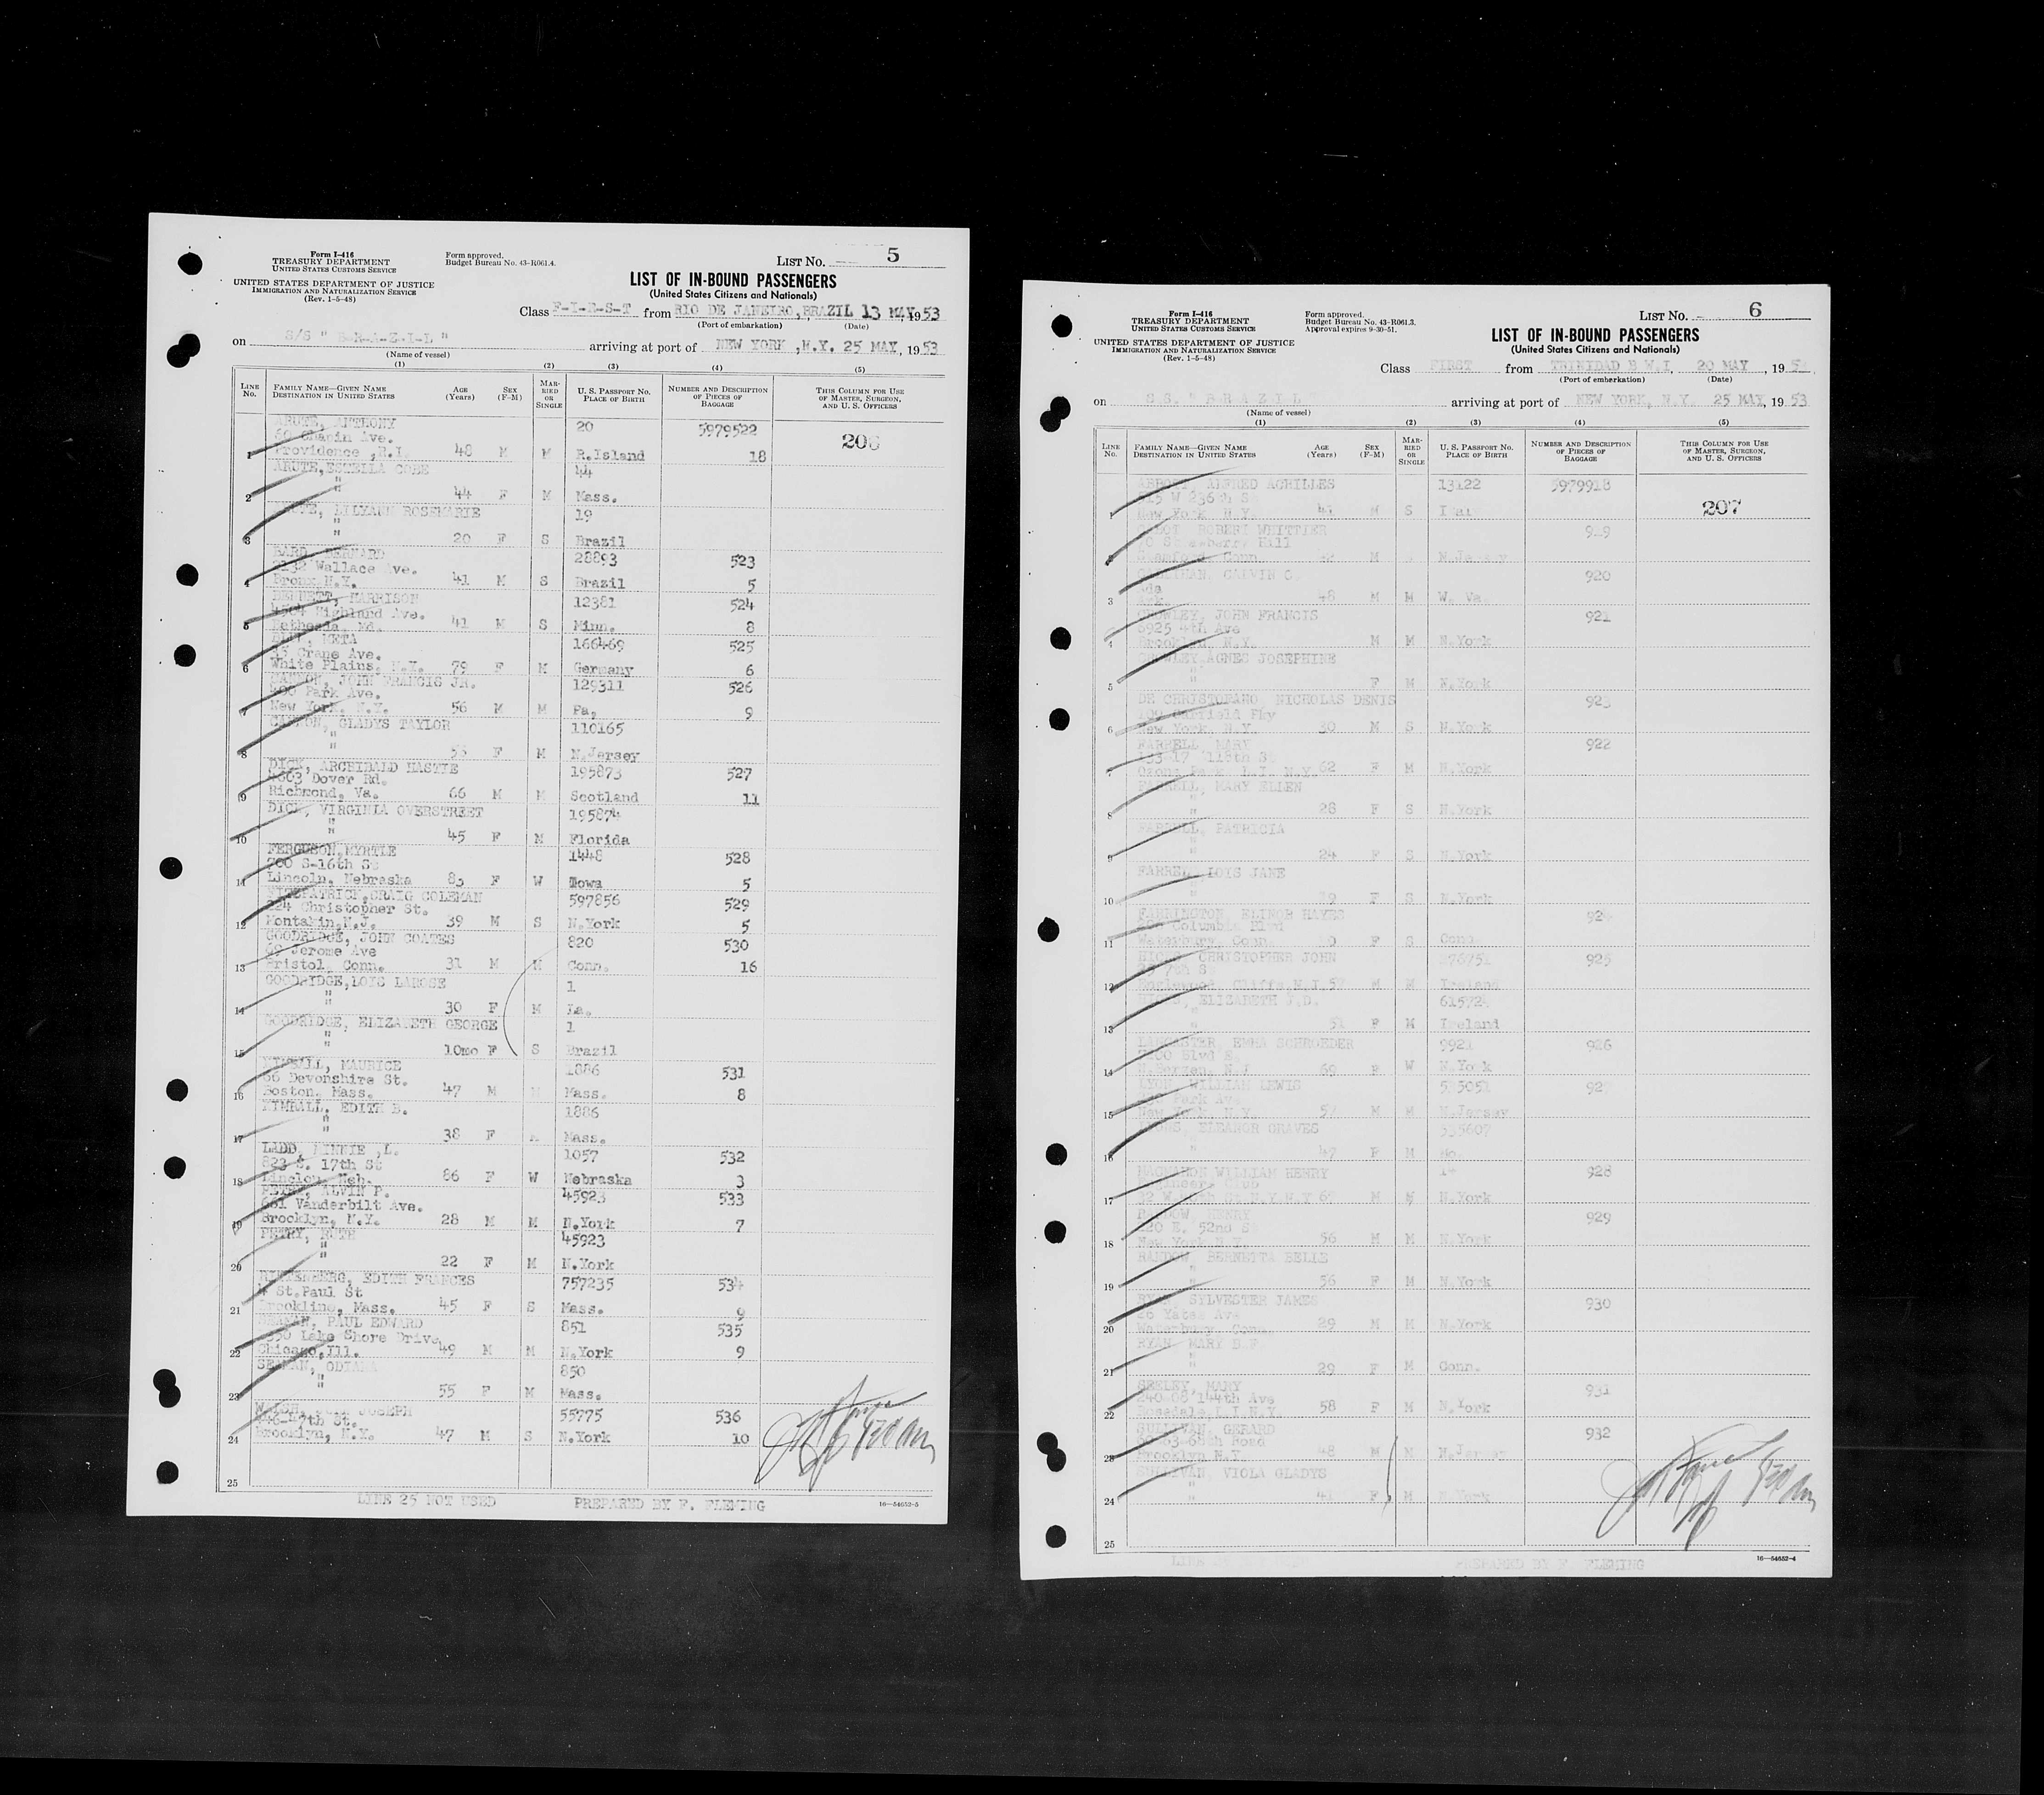 Form I-416
TREASURY DEPARTMENT
UNITED STATES CUSTOMS SERVICE
UNITED STATES DEPARTMENT OF JUSTICE
IMMIGRATION AND NATURALIZATION SERVICE
(Rev. 1-5-48)
Form approved.
Budget Bureau No. 43-R061.4.
LIST NO. 5
LIST OF IN-BOUND PASSENGERS
(United States Citizens and Nationals)
Class F-I-R-S-T from RIO DE JANEIRO, BRAZIL 13 MAY, 1953
(Port of embarkation) (Date)
on S/S " B-R-A-Z-I-L " arriving at port of NEW YORK, N.Y. 25 MAY, 1953
(Name of vessel)
(1) (2) (3) (4) (5)
LINE No. FAMILY NAME—GIVEN NAME DESTINATION IN UNITED STATES AGE (Years) SEX (F-M) MARRIED OR SINGLE U. S. PASSPORT NO. PLACE OF BIRTH NUMBER AND DESCRIPTION OF PIECES OF BAGGAGE THIS COLUMN FOR USE OF MASTER, SURGEON, AND U. S. OFFICERS
ARUTE, ANTHONY 20 5979522
60 Chapin Ave. 206
1 Providence ,R.I. 48 M M R.Island 18
ARUTE,ESTELLA COBE 44
"
2 " 44 F M Mass.
LILYANN ROSEMARIE 19
"
3 " 20 F S Brazil
BARD, BERNARD 28893 523
2132 Wallace Ave.
4 Bronx N.Y. 41 M S Brazil 5
BENNETT, HARRISON 12381 524
Highland Ave.
5 Bethesda, Md. 41 M S Minn. 8
META 166469 525
Crane Ave.
6 White Plains, N.Y. 79 F M Germany 6
CANNON, JOHN FRANCIS JR. 129311 526
Park Ave.
7 New York, N.Y. 56 M M Pa, 9
CANNON, GLADYS TAYLOR 110165
"
8 " 53 F M N.Jersey
DICK, ARCHIBALD HASTIE 195873 527
4603 Dover Rd.
9 Richmond, Va. 66 M M Scotland 11
DICK, VIRGINIA OVERSTREET 195874
"
10 " 45 F M Florida
FERGUSON,MYRTLE 1448 528
700 S-16th St
11 Lincoln, Nebraska 83 F W Iowa 5
FITZPATRICK,CRAIG COLEMAN 597856 529
224 Christopher St.
12 Montakin,N.J. 39 M S N.York 5
GOODRIDGE, JOHN COATES 820 530
69 Jerome Ave
13 Bristol, Conn. 31 M M Conn. 16
GOODRIDGE,LOYS LAROSE 1
"
14 30 F M La.
GOODRIDGE, ELIZABETH GEORGE 1
"
15 " 10mo F S Brazil
KIMBALL, MAURICE 1886 531
66 Devonshire St.
16 Boston, Mass. 47 M M Mass. 8
KIMBALL, EDITH B. 1886
"
17 " 38 F Mass.
LADD, MINNIE ,L. 1057 532
823 S. 17th St
18 Lincoln, Neb. 86 F W Nebraska 3
PETRY, ALVIN P. 45923 533
661 Vanderbilt Ave.
19 Brooklyn, N.Y. 28 M M N.York 7
PETRY, RUTH 45923
"
20 " 22 F M N.York
RITTENBERG, EDITH FRANCES 757235 534
4 St.Paul St
21 Brookline, Mass. 45 F S Mass. 9
SEAMAN, PAUL EDWARD 851 535
Lake Shore Drive
22 Chicago,Ill. 49 M M N.York 9
SEAMAN, ODIANA 850
"
23 " 55 F M Mass.
JOSEPH 55775 536
446-47th St.
24 Brooklyn, N.Y. 47 M S N.York 10
25
LINE 25 NOT USED PREPARED BY F. FLEMING 16—54652-5
Form I-416
TREASURY DEPARTMENT
UNITED STATES CUSTOMS SERVICE
UNITED STATES DEPARTMENT OF JUSTICE
IMMIGRATION AND NATURALIZATION SERVICE
(Rev. 1-5-48)
Form approved.
Budget Bureau No. 43-R061.3.
Approval expires 9-30-51.
LIST NO. 6
LIST OF IN-BOUND PASSENGERS
(United States Citizens and Nationals)
Class FIRST from TRINIDAD B W.I. 20 MAY, 195
(Port of embarkation) (Date)
on S S. " B R A Z I L " arriving at port of NEW YORK, N.Y. 25 MAY, 1953
(Name of vessel)
(1) (2) (3) (4) (5)
LINE No. FAMILY NAME—GIVEN NAME DESTINATION IN UNITED STATES AGE (Years) SEX (F-M) MARRIED OR SINGLE U. S. PASSPORT NO. PLACE OF BIRTH NUMBER AND DESCRIPTION OF PIECES OF BAGGAGE THIS COLUMN FOR USE OF MASTER, SURGEON, AND U. S. OFFICERS
ABBOTT ALFRED ACHILLES 13122 5979918
W 236th St 207
1 New York N.Y. 41 M S
ROBERT WHITTIER 919
Hill
2 Stamford, Conn. M N.Jersey
CALVIN C. 920
3 48 M M W. Va.
CROWLEY, JOHN FRANCIS 921
6925 4th Ave
4 Brooklyn, N.Y. M M N.York
CROWLEY AGNES JOSEPHINE
5 " F M N.York
DE CHRISTOFANO, NICHOLAS DENIS 923
Pky
6 New York, N.Y. 30 M S N.York
FARRELL, MARY 922
118th St
7 Ozone Park L.I. N.Y. 62 F M N.York
FARRELL, MARY ELLEN
8 " 28 F S N.York
FARRELL, PATRICIA
9 " 24 F S N.York
FARRELL LOYS JANE
10 " 19 F S N.York
FARRINGTON, ELINOR HAYES 924
Columbia Blvd
11 Waterbury, Conn. F S Conn.
CHRISTOPHER JOHN 925
7th St
12 Englewood, Cliffs N.J. 57 M M Ireland
ELIZABETH 61572
13 " 51 F M Ireland
LANCASTER, EMMA SCHROEDER 9921 926
Blvd E.
14 N.Bergen, N.J 69 F W N.York
LYON, WILLIAM LEWIS 927
Park Av.
15 New York, N.Y. 57 M M N.Jersey
ELEANOR GRAVES 535607
16 " 47 F M Mo.
MACMAHON WILLIAM HENRY 928
17 N.Y. N.Y M N.York
HENRY 929
E. 52nd St
18 New York N.Y. 56 M M N.York
BERNETTA BELLE
19 " 56 F M N.York
RYAN, SYLVESTER JAMES 930
26 Yates Ave
20 Waterbury, Conn. 29 M M N.York
RYAN MARY
21 " 29 F M Conn.
SEELEY, MARY 931
240-08 144th Ave
22 Rosedale, L I N.Y 58 F M N.York
SULLIVAN, GERARD 932
68th Road
23 Brooklyn N.Y. 48 M M N.Jersey
SULLIVAN, VIOLA GLADYS
24 " 41 F M N.York
25
PREPARED BY F. FLEMING 16—54652-4